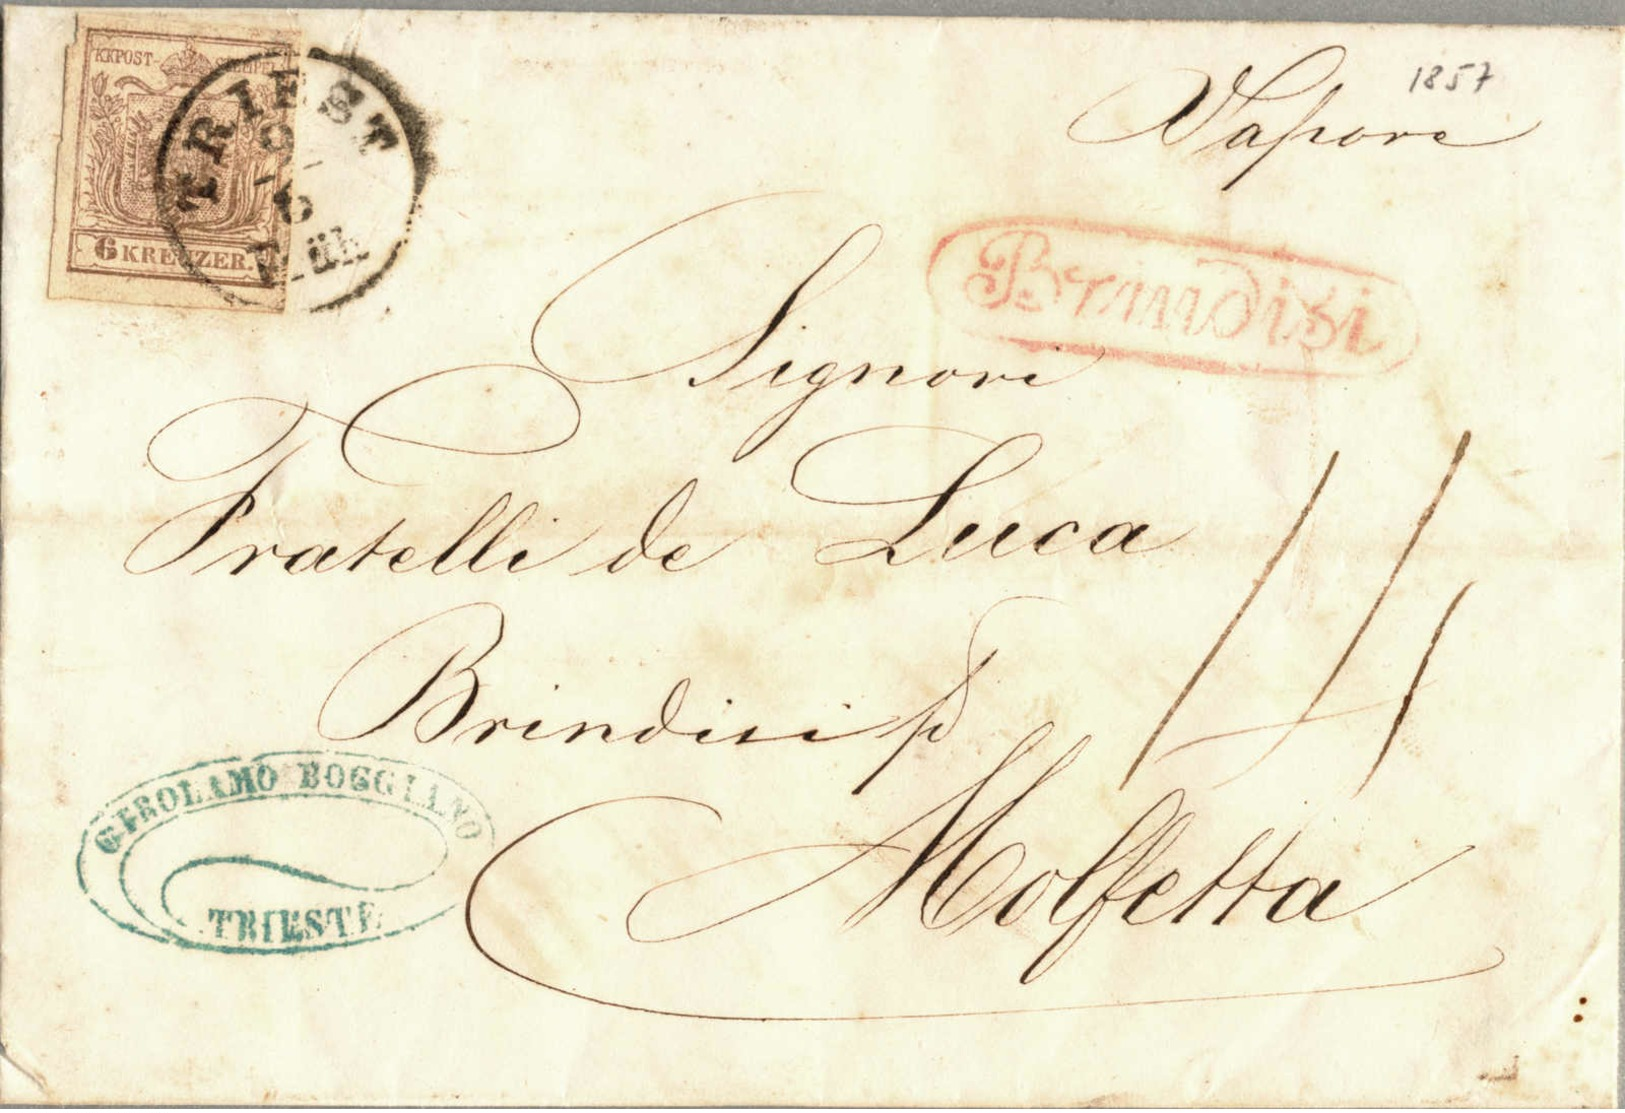 KKPOST-STEMPEL
6 KREUZER.
TRIEST
9
6
Früh
1857
Vapore
Brindisi
Signori
Fratelli de Luca
Brindisi p
Molfetta
GEROLAMO BOGGIANO
TRIESTE